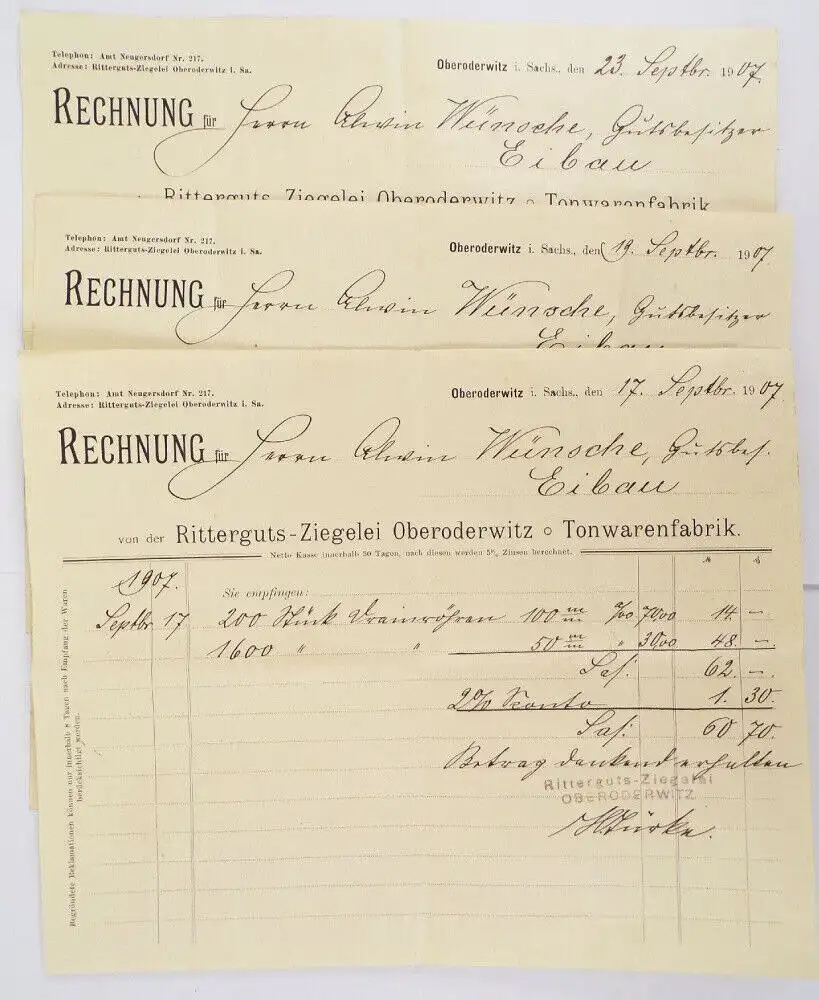 Telephon: Amt Neugersdorf Nr. 217.
Adresse: Ritterguts-Ziegelei Oberoderwitz i. Sa.
Oberoderwitz i. Sachs., den 23. Septbr. 1907.
RECHNUNG für Herrn Alwin Wünsche, Gutsbesitzer
Eibau
Ritterguts-Ziegelei Oberoderwitz o Tonwarenfabrik
Telephon: Amt Neugersdorf Nr. 217.
Adresse: Ritterguts-Ziegelei Oberoderwitz i. Sa.
Oberoderwitz i. Sachs., den 19. Septbr. 1907.
RECHNUNG für Herrn Alwin Wünsche, Gutsbesitzer
Eibau
Telephon: Amt Neugersdorf Nr. 217.
Adresse: Ritterguts-Ziegelei Oberoderwitz i. Sa.
Oberoderwitz i. Sachs., den 17. Septbr. 1907
RECHNUNG für Herrn Alwin Wünsche, Gutsbes.
Eibau
von der Ritterguts-Ziegelei Oberoderwitz o Tonwarenfabrik.
Netto Kasse innerhalb 30 Tagen, nach diesen werden 5% Zinsen berechnet.
1907.
Sie empfingen:
Septbr. 17 200 Stück Drainröhren 100 m/m %0 70,00 14. –
1600 " " 50 m/m " 30,00 48. –
Sa: 62. –
2% Skonto 1. 30.
Sa: 60 70.
Betrag dankend erhalten
Ritterguts-Ziegelei
OBERODERWITZ
Begründete Reklamationen können nur innerhalb 8 Tagen nach Empfang der Waren
berücksichtigt werden.